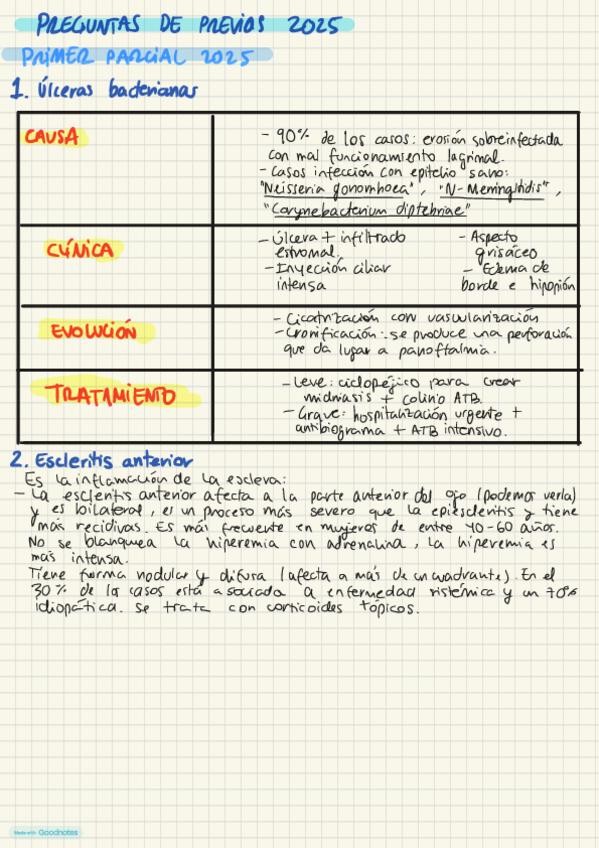 PREGUNTAS DE PREVIOS 2025
PRIMER PARCIAL 2025
1. Úlceras bacterianas
CAUSA
- 90% de los casos: erosión sobreinfectada
con mal funcionamiento lagrimal.
- Casos infección con epitelio sano:
"Neisseria gonorrhoea", "N-Meningitidis",
"Corynebacterium diptebriae"
CLÍNICA
- Úlcera + infiltrado
estromal.
- Inyección ciliar
intensa
- Aspecto
grisáceo
- Edema de
borde e hipopión
EVOLUCIÓN
- Cicatrización con vascularización
- Cronificación: se produce una perforación
que da lugar a panoftalmia.
TRATAMIENTO
- Leve: ciclopéjico para crear
midriasis + colirio ATB.
- Grave: hospitalización urgente +
antibiograma + ATB intensivo.
2. Escleritis anterior
Es la inflamación de la esclera:
- La escleritis anterior afecta a la parte anterior del ojo (podemos verla)
y es bilateral, es un proceso más severo que la epiescleritis y tiene
más recidivas. Es más frecuente en mujeres de entre 40-60 años.
No se blanquea la hiperemia con adrenalina, la hiperemia es
más intensa.
Tiene forma nodular y difusa (afecta a más de un cuadrante). En el
30% de los casos está asociada a enfermedad sistémica y un 70%
idiopática. Se trata con corticoides tópicos.
Made with Goodnotes